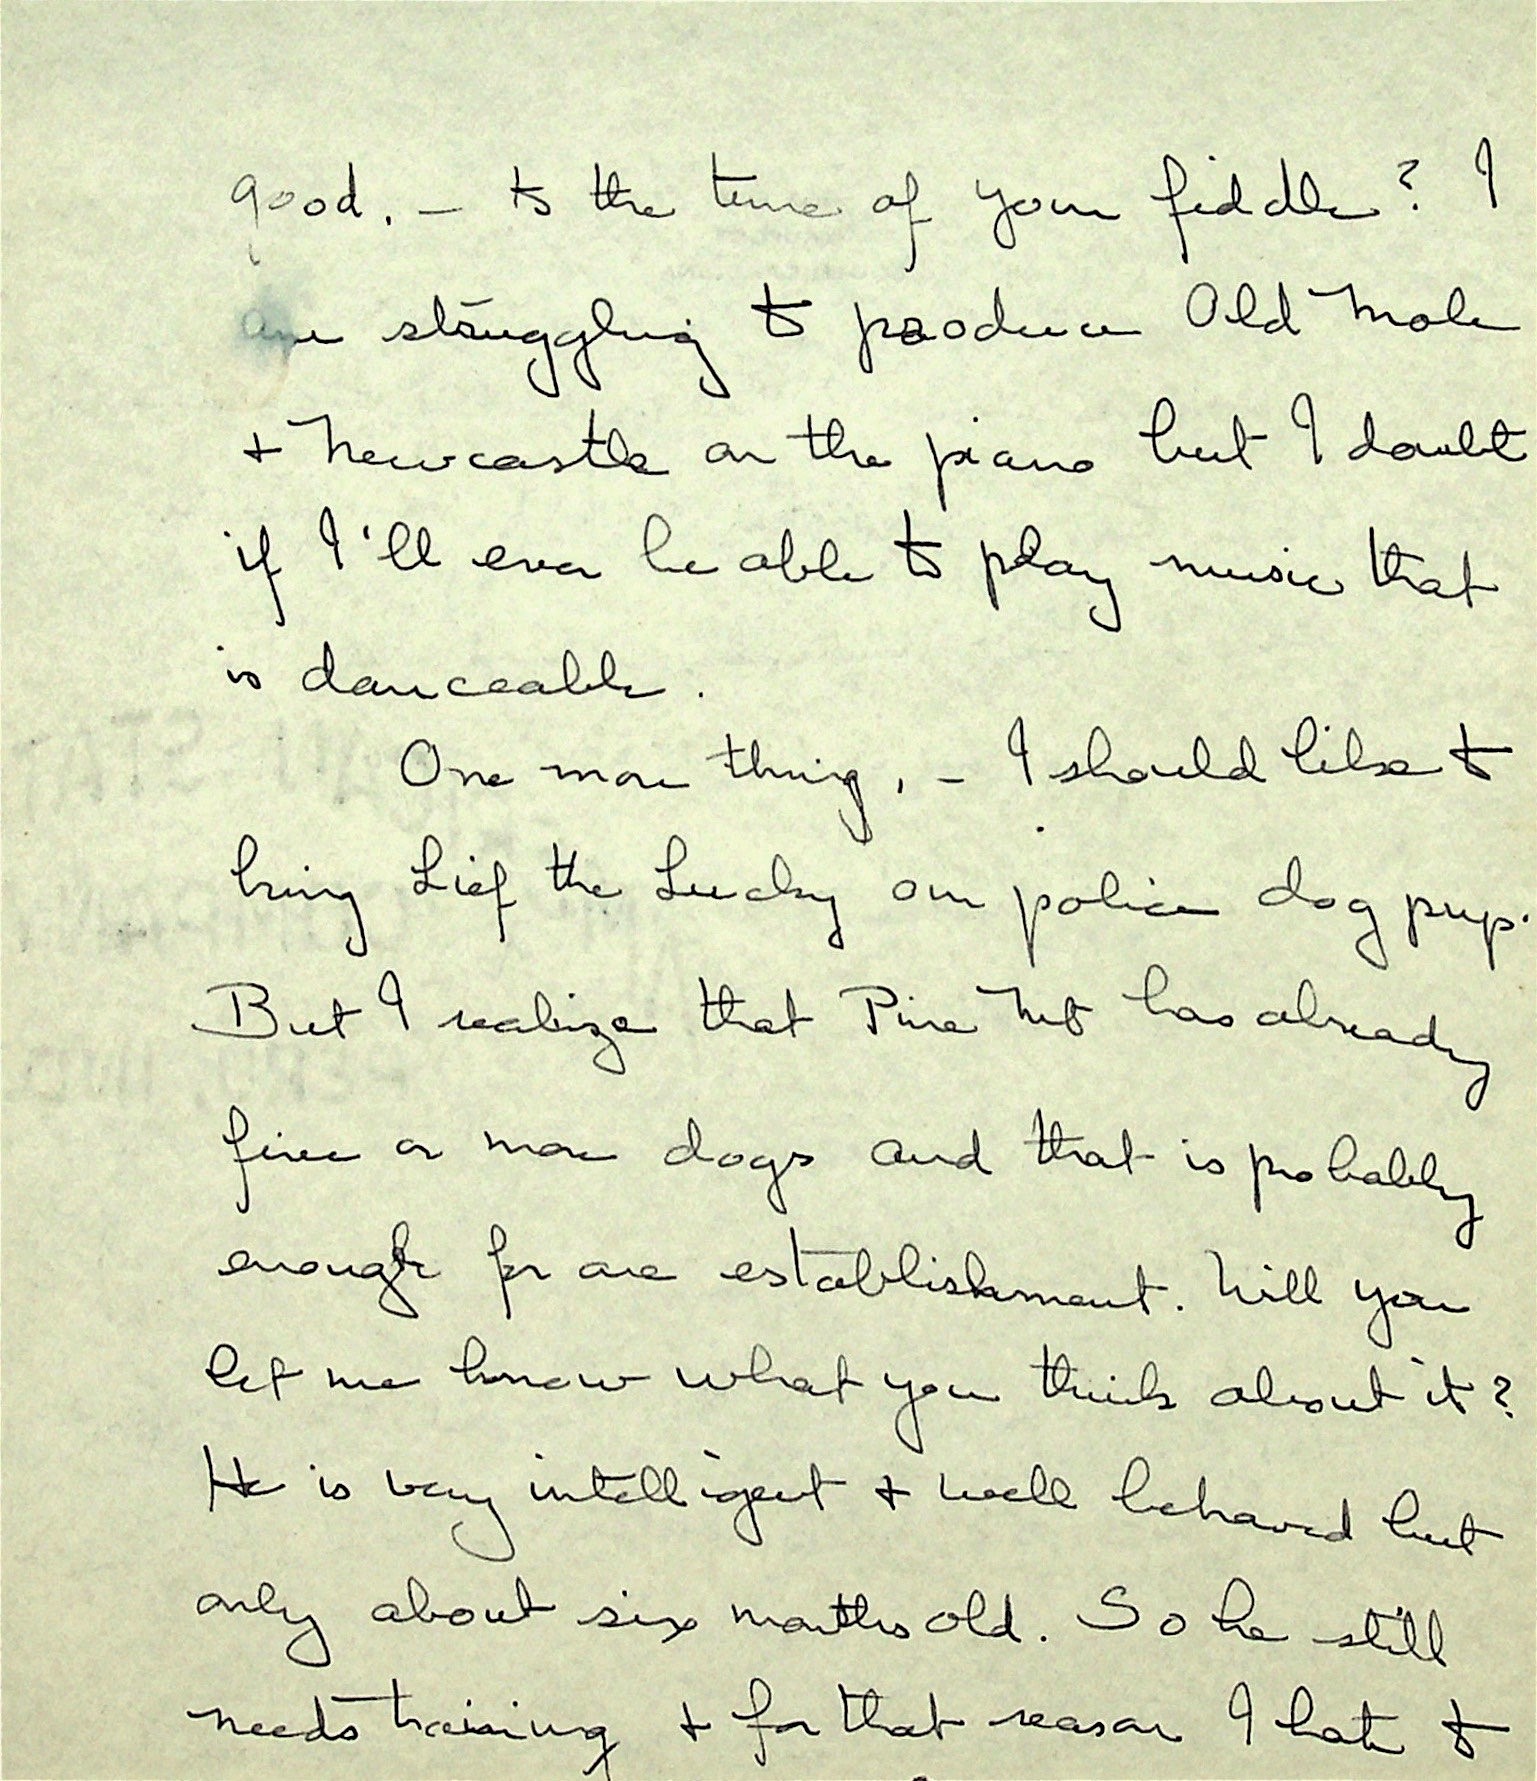 good. – to the tune of your fiddle? I
am struggling to produce Old Mole
+ Newcastle on the piano but I doubt
if I'll ever be able to play music that
is danceable.
One more thing, – I should like to
bring Lief the Lucky our police dog pup.
But I realize that Pine Mt has already
five or more dogs and that is probably
enough for one establishment. Will you
let me know what you think about it?
He is very intelligent + well behaved but
only about six months old. So he still
needs training + for that reason I hate to